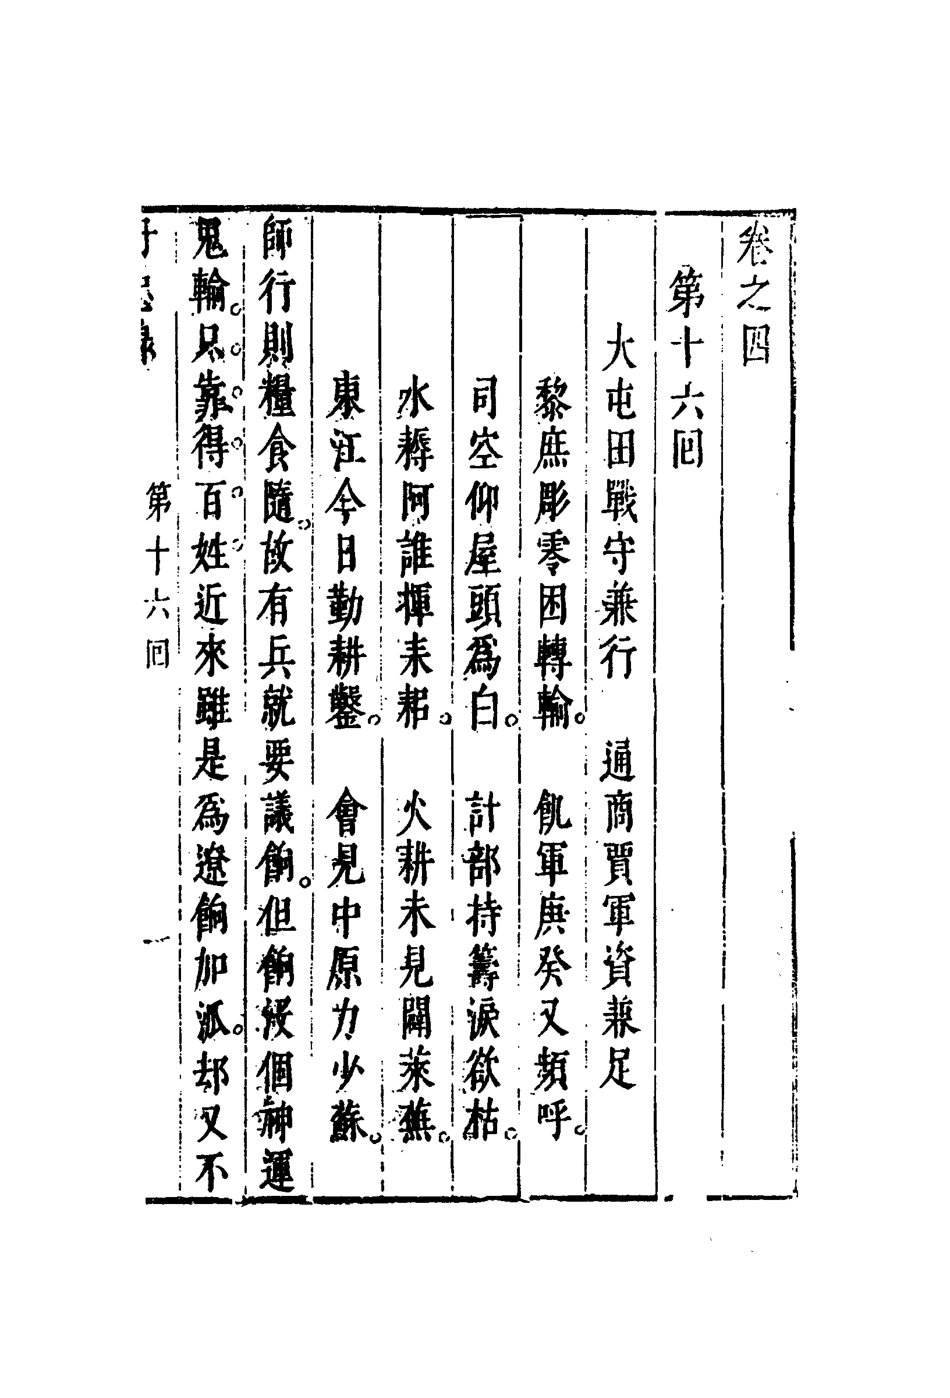 卷之四
第十六囘
大屯田戰守兼行　通商賈軍資兼足
黎庶彫零困轉輸。　飢軍庚癸又頻呼。
司空仰屋頭爲白。　計部持籌淚欲枯。
水耨阿誰揮耒耜。　火耕未見闢萊蕪。
東江今日勤耕鑿。　會見中原力少蘇。
師行則糧食隨。故有兵就要議餉。但餉没個神運
鬼輸。只靠得百姓近來雖是爲遼餉加派。却又不
第十六囘
一